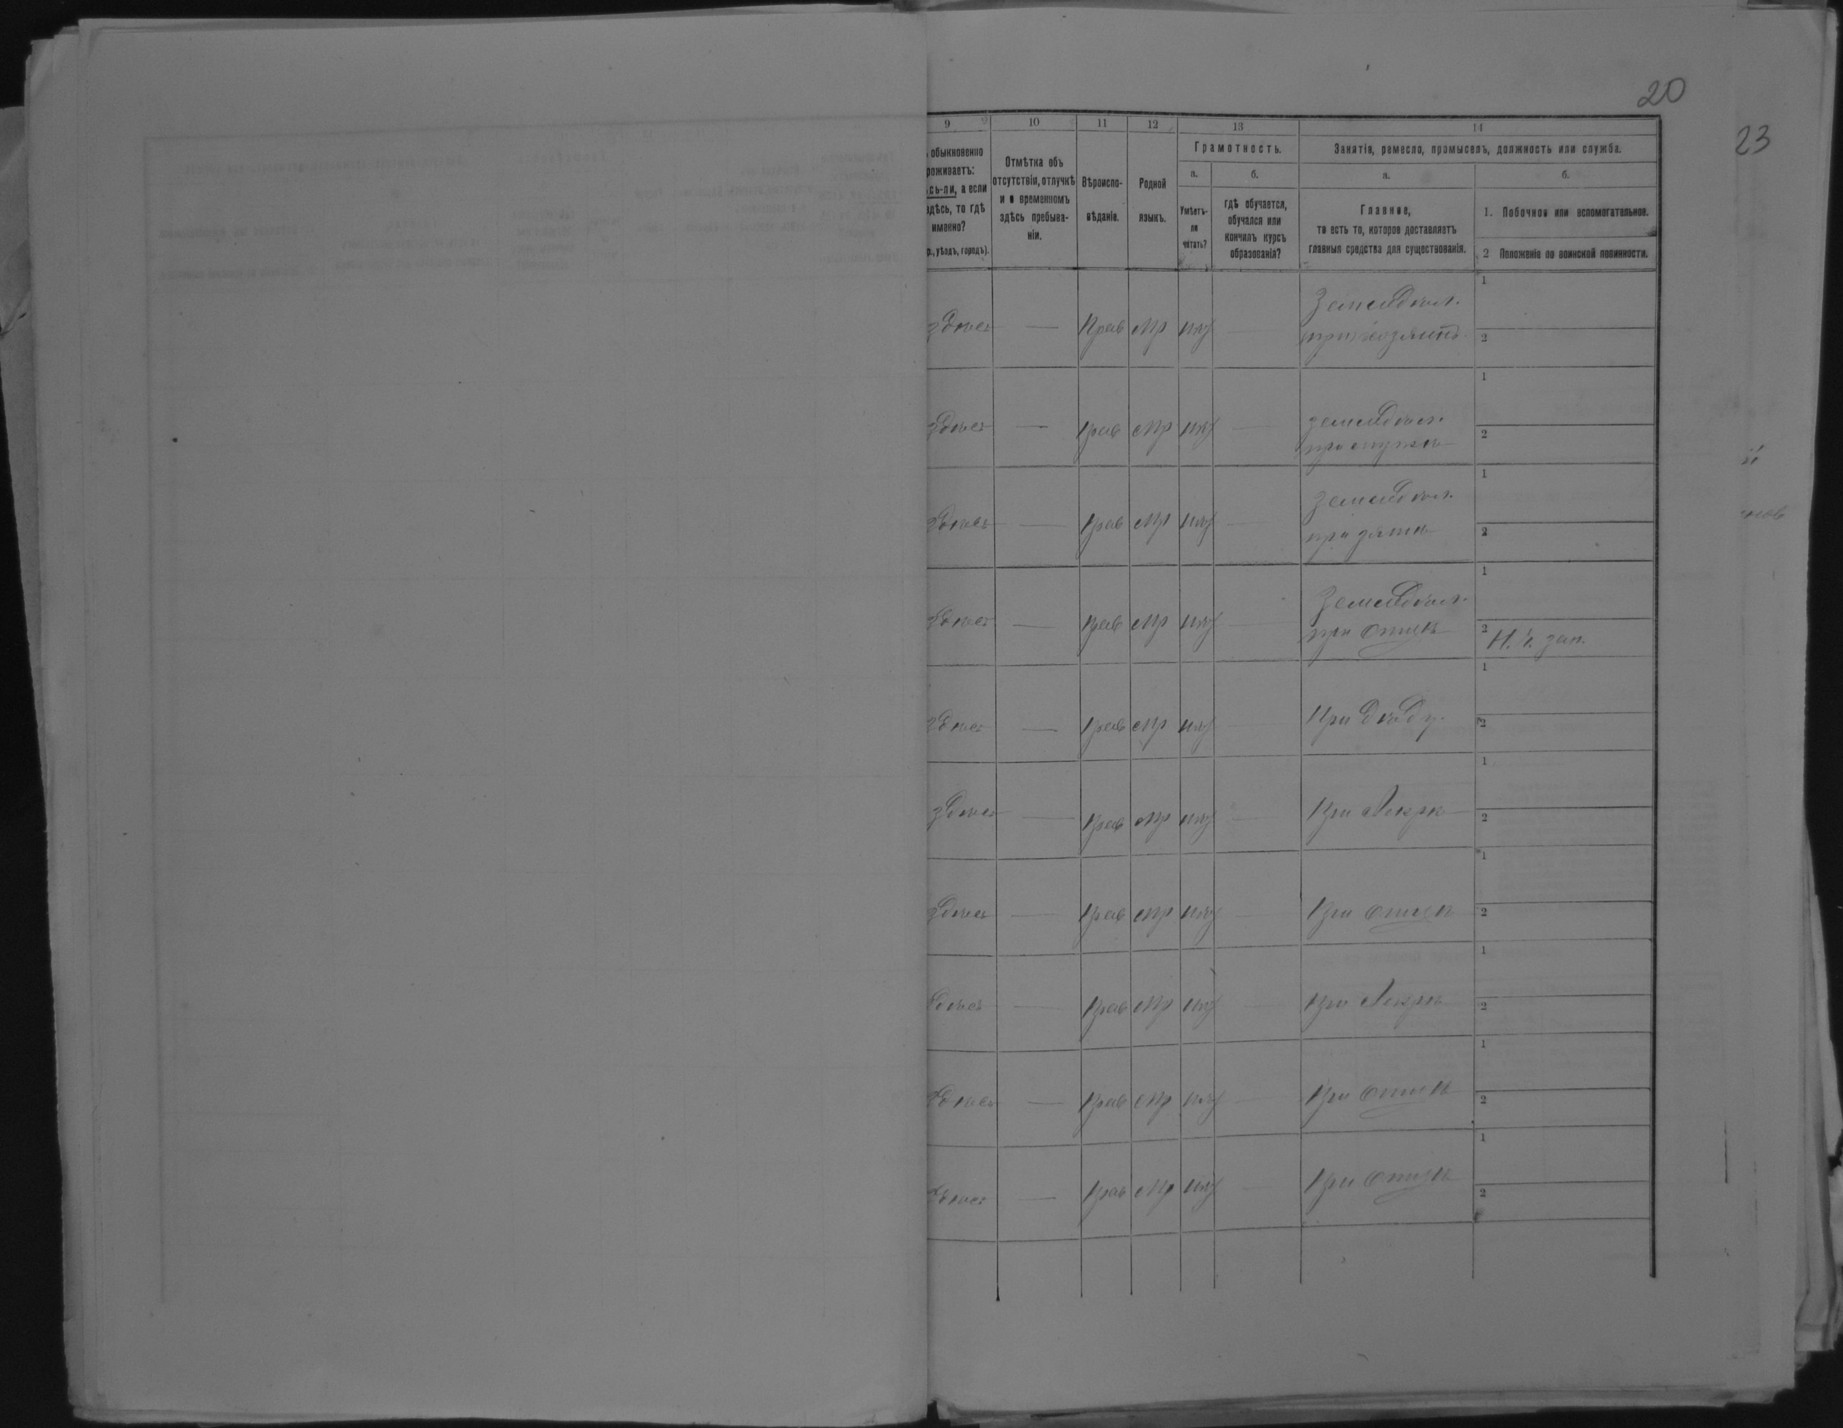 20
23
9 10 11 12 13 14
обыкновенно
роживаетъ:
сь-ли, а если
здѣсь, то гдѣ
именно?
р., уѣздъ, городъ).
Отмѣтка объ
отсутствіи, отлучкѣ
и о временномъ
здѣсь пребыва-
ніи.
Вѣроиспо-
вѣданіе.
Родной
языкъ.
Грамотность.
а.
Умѣетъ-
ли
читать?
б.
гдѣ обучается,
обучался или
кончилъ курсъ
образованія?
Занятіе, ремесло, промыселъ, должность или служба.
а.
Главное,
то есть то, которое доставляетъ
главныя средства для существованія.
б.
1. Побочное или вспомогательное.
2 Положеніе по воинской повинности.
здѣсь — Прав Мр нѣт — Земледѣл. 1
2
здѣсь — Прав Мр нѣт — земледѣл. 1
при мужѣ 2
здѣсь — Прав Мр нѣт — Земледѣл. 1
при зятѣ 2
здѣсь — Прав Мр нѣт — Земледѣл. 1
при отцѣ 2 Н. Ч. зап.
здѣсь — Прав Мр нѣт — При дѣду. 1
2
здѣсь — Прав Мр нѣт — При 1
2
здѣсь — Прав Мр нѣт — При отцѣ 1
2
здѣсь — Прав Мр нѣт — При 1
2
здѣсь — Прав Мр нѣт — При отцѣ 1
2
здѣсь — Прав Мр нѣт — При отцѣ 1
2